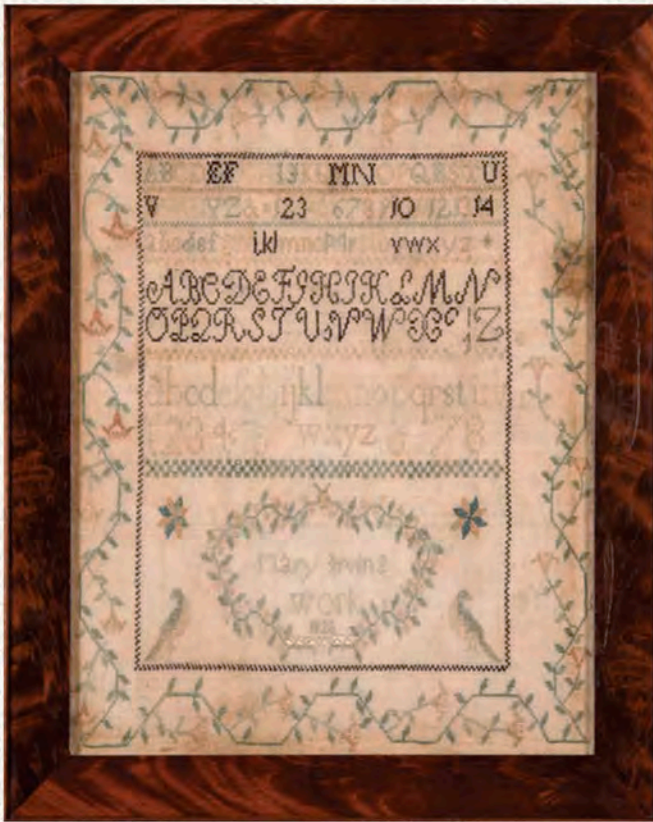 AB EF IJ MN QRST U
V YZ& 23 678 10 12 14
abcdef ijkl mnopqr vwx yz
ABCDEFGHIJKLMN
OPQRSTUVWXYZ
abcdefghijklmnopqrstuv
1234 wxyz 678
Mary Irvine
work